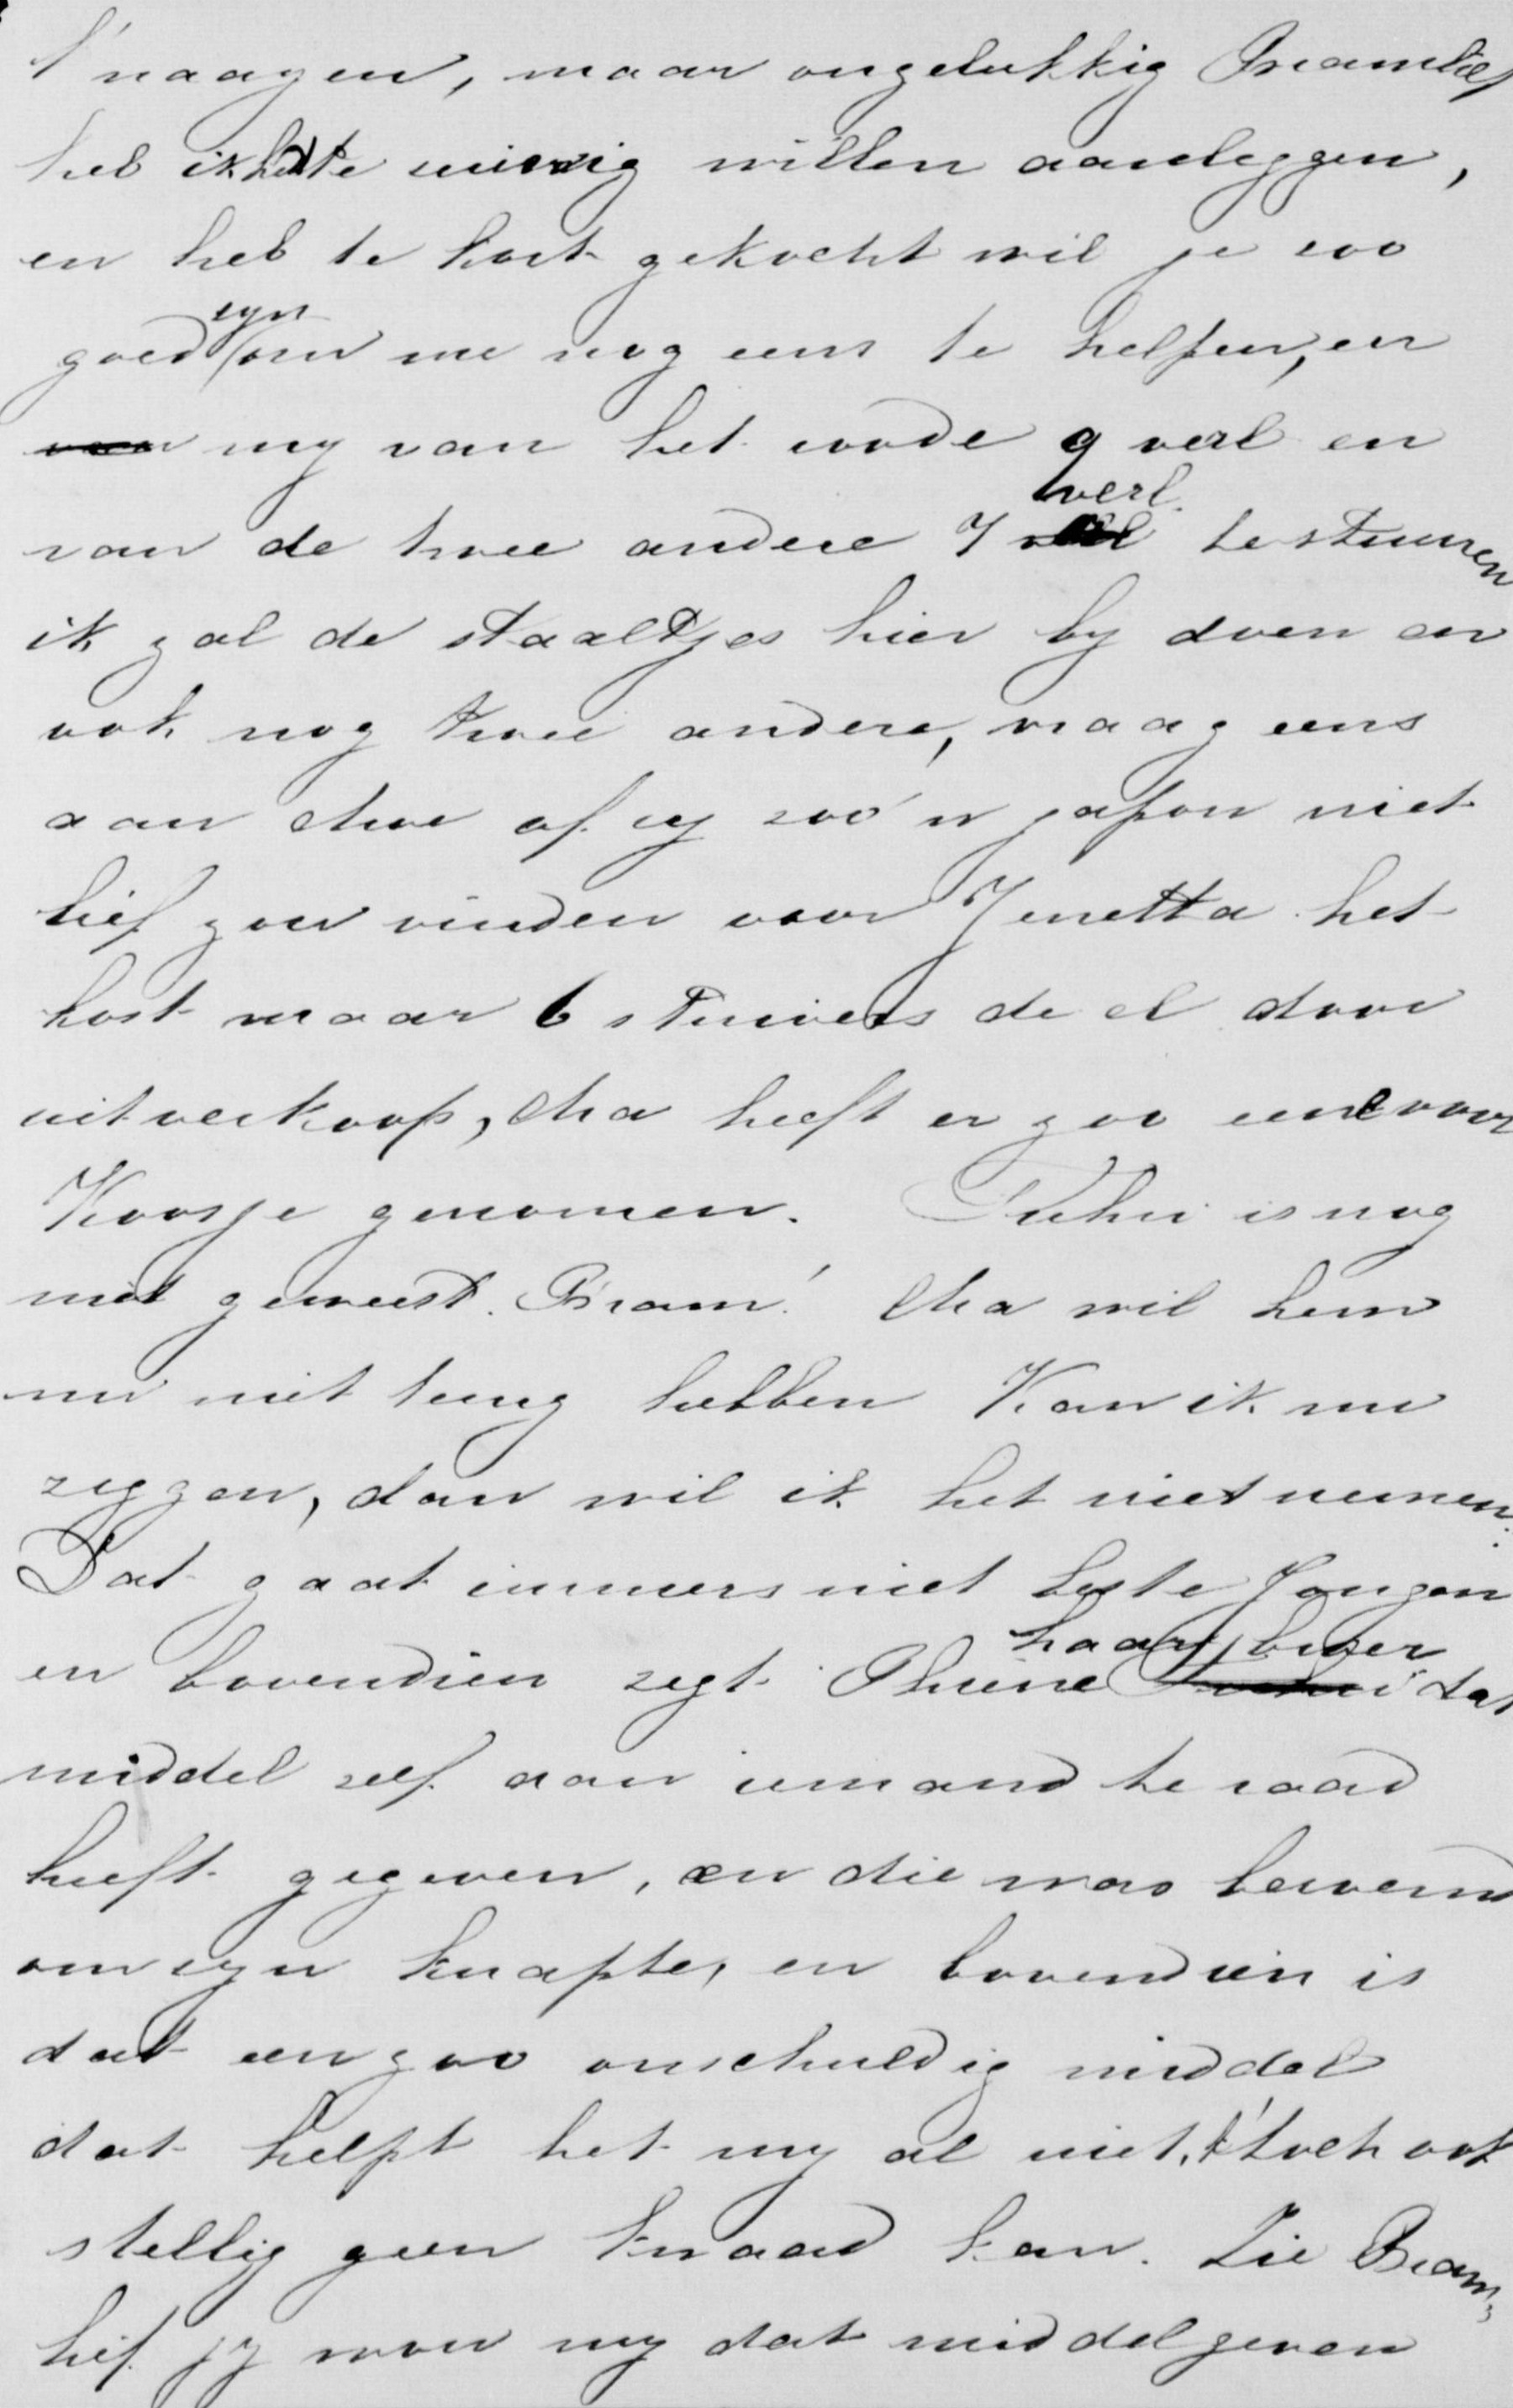 vraagen, maar ongelukkig Bramlief
heb ik het te zuinig willen aanleggen,
en heb te kort gekocht wil je zoo
goed zyn om me nog eens te helpen, en
my van het roode 9 verl en
van de twee andere 7 verl. te sturen
ik zal de staaltjes hier by doen en
ook nog twee andere, vraag eens
aan Moe of zy zoo'n japon niet
lief zou vinden voor Jenetta het
kost maar 6 stuivers de el door
uitverkoop, Ma heeft er zoo een voor
Koosje genomen. is nog
niet geweest. Bram! Ma wil hem
nu niet terug hebben Kan ik nu
zeggen, dan wil ik het niet nemen.
Dat gaat immers niet beste Jongen
en bovendien zegt Phine haar broer dat
middel zelf aan iemand te raad
heeft gegeven, en die was beroemd
om zyn knapte, en bovendien is
dat een zoo onschuldig middel
dat helpt het my al niet, 't toch ook
stellig geen kwaad kan. Zie Bram,
lief jy wou my dat middel geven